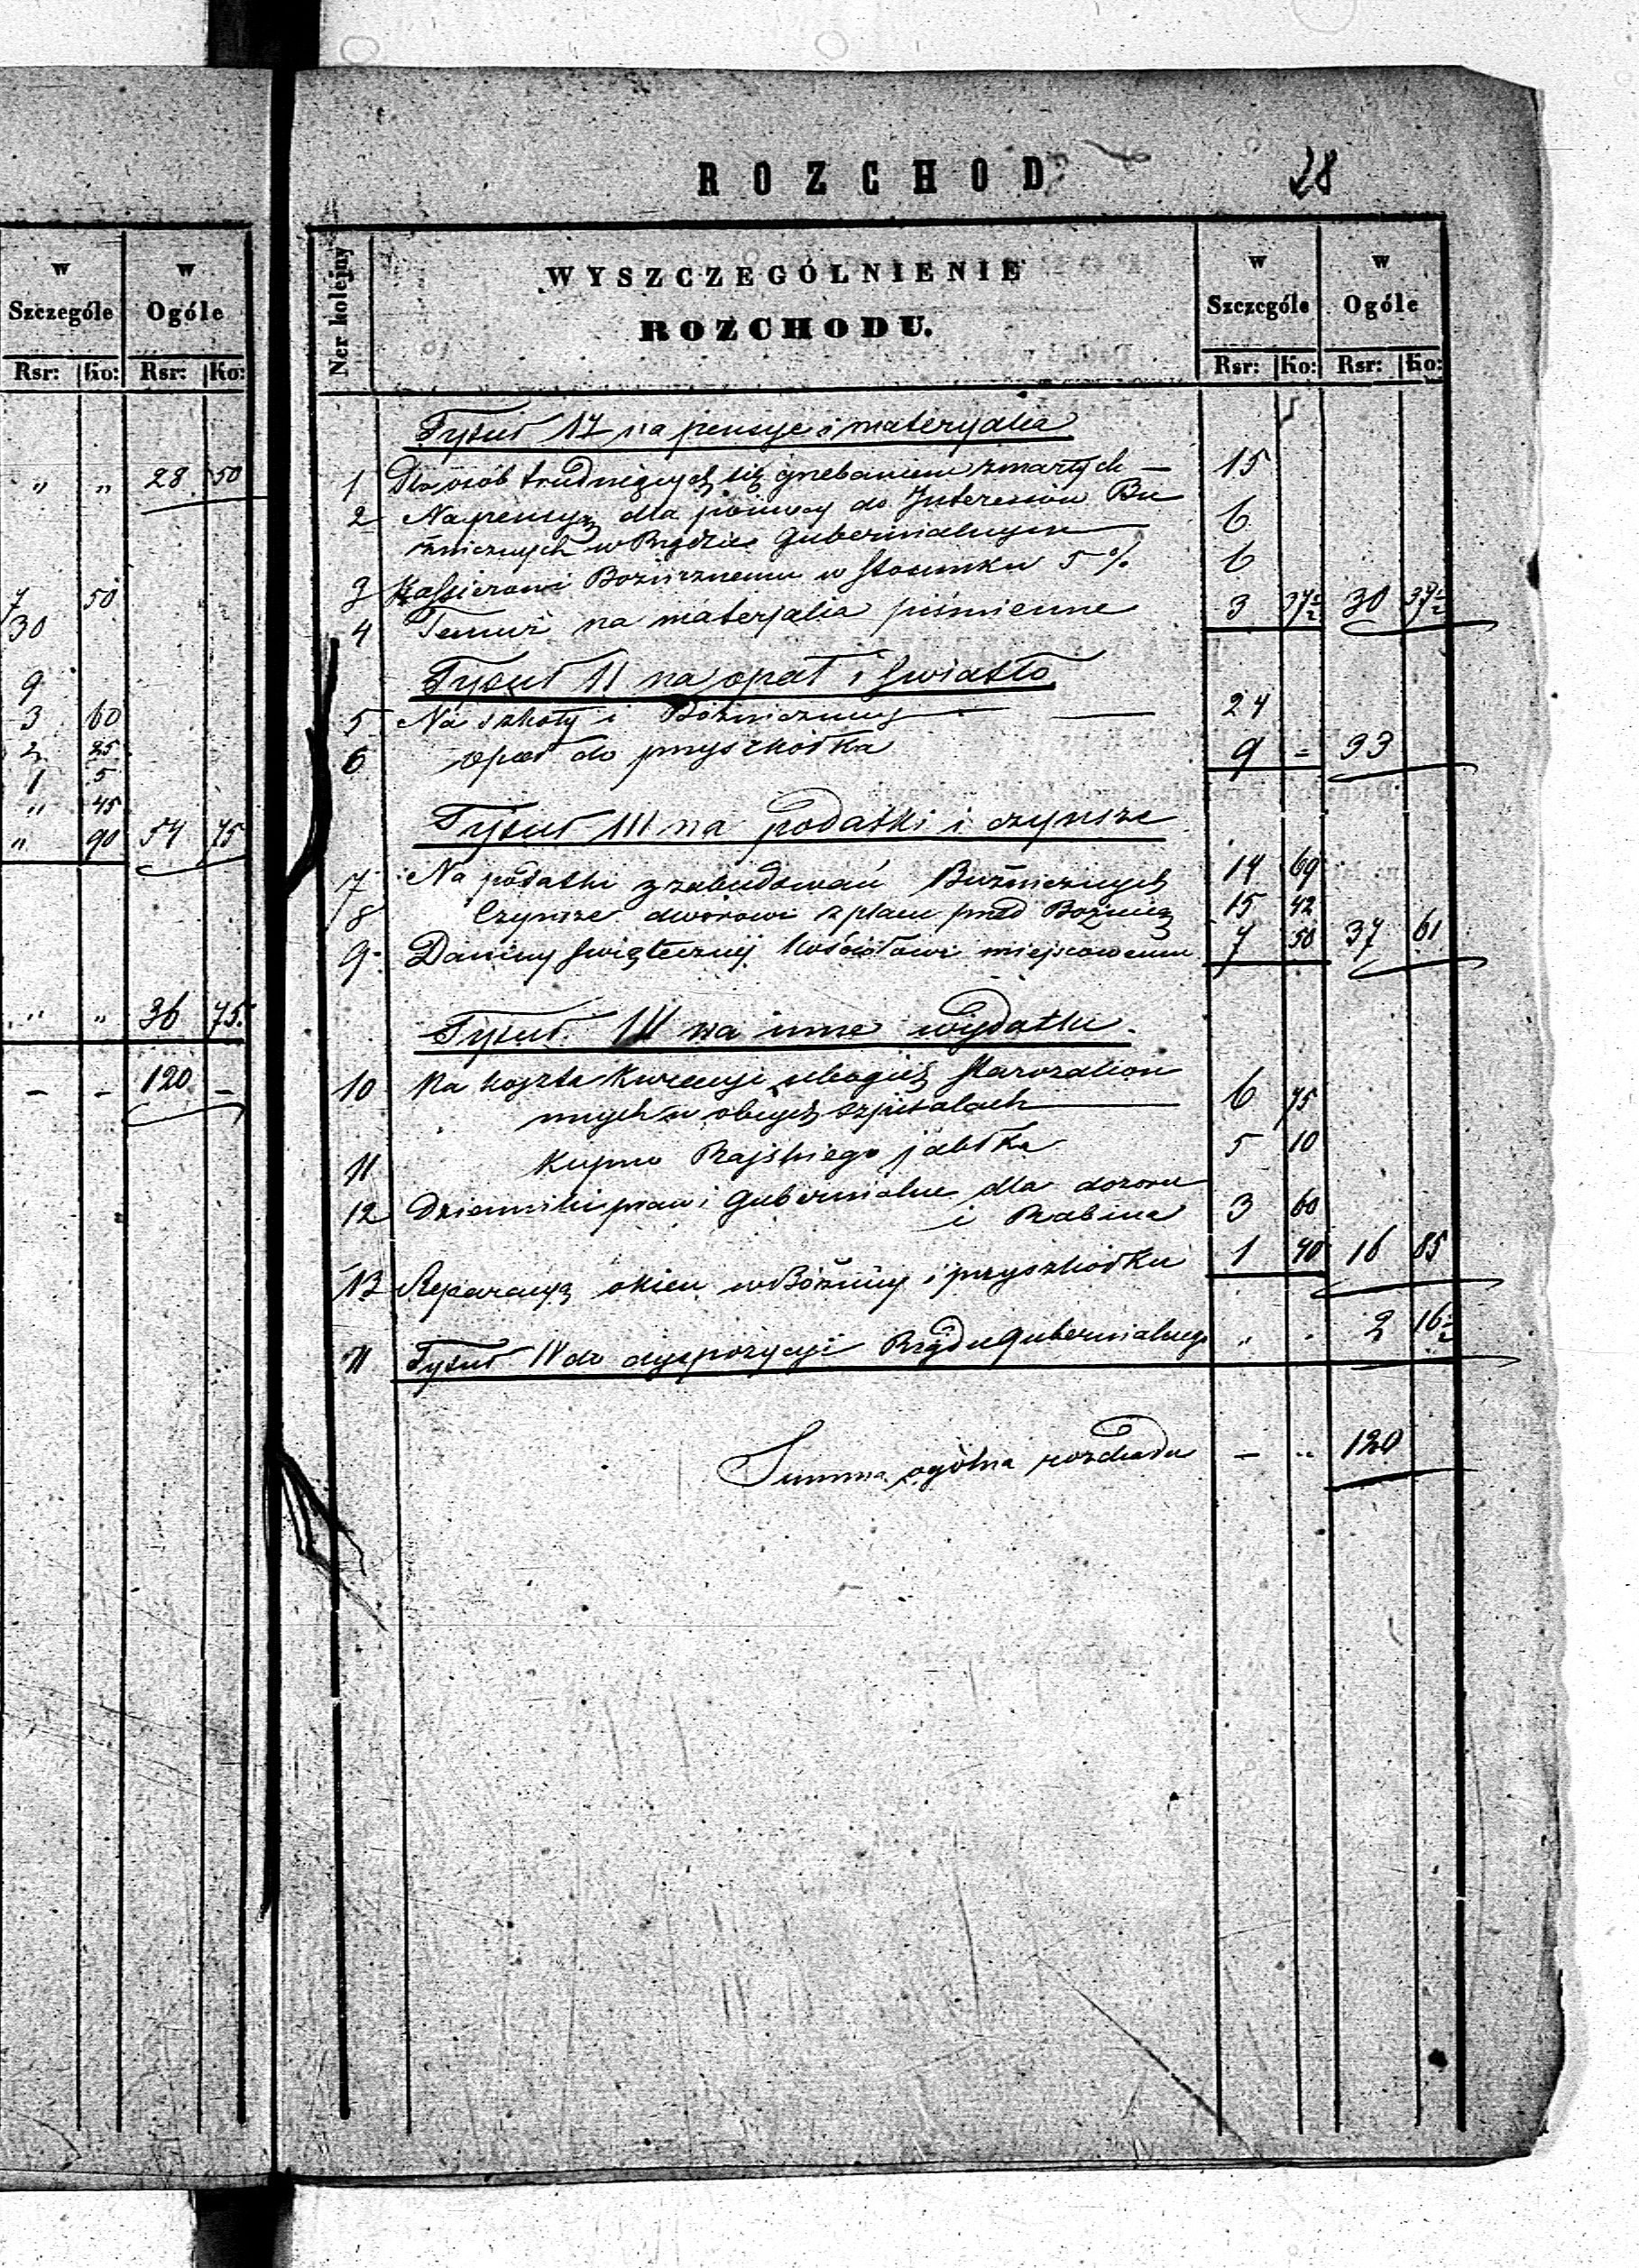 w w
Szczególe Ogóle
Rsr: Ko: Rsr: Ko:
" " 28 50
7 50
30
9
3 60
2 25
1 5
" 45
" 90 54 75
" " 36 75.
- - 120 -
ROZCHOD 28
Ner kolejny
WYSZCZEGÓLNIENIE
ROZCHODU.
w w
Szczególe Ogóle
Rsr: Ko: Rsr: Ko:
Tytuł na pensye i materyalia
1 Dla osób trudniących się grzebaniem zmarłych — 15
2 Na pensyą dla pomocy do Interesów Bu
żnicznych w Rządzie Gubernialnym — 6
3 Kassierowi Bożnicznemu w stosunku 5 % 6
4 Temuż na materjalia piśmienne 3 37½ 30 37½
Tytuł II na opał i swiatło
5 Na szkoły i Bożniczny — — 24
6 Opał do przyszkółka 9 = 33
Tytuł III na podatki i czynsze
7 Na podatki z zabudowań Bużnicznych 14 69
8 Czynsze dworowi z placu pod Bożnicą 15 42
9 Daniny swiąteczny kościołowi miejscowemu 7 50 37 61
Tytuł na inne wydatki
10 Na koszta kuracyi ubogich starozakon
nych w obcych szpitalach — 6 75
11 Kupno Rajskiego jabłka 5 10
12 Dzienniki praw i Gubernialne dla dozoru
i Rabina 3 60
13 Reparacyą okien w Bożnicy i przyszkółku 1 40 16 85
11 Tytuł IV do dyspozycyi Rządu Gubernialnego " . 2 16½
Summa ogólna rozchodu — " 120